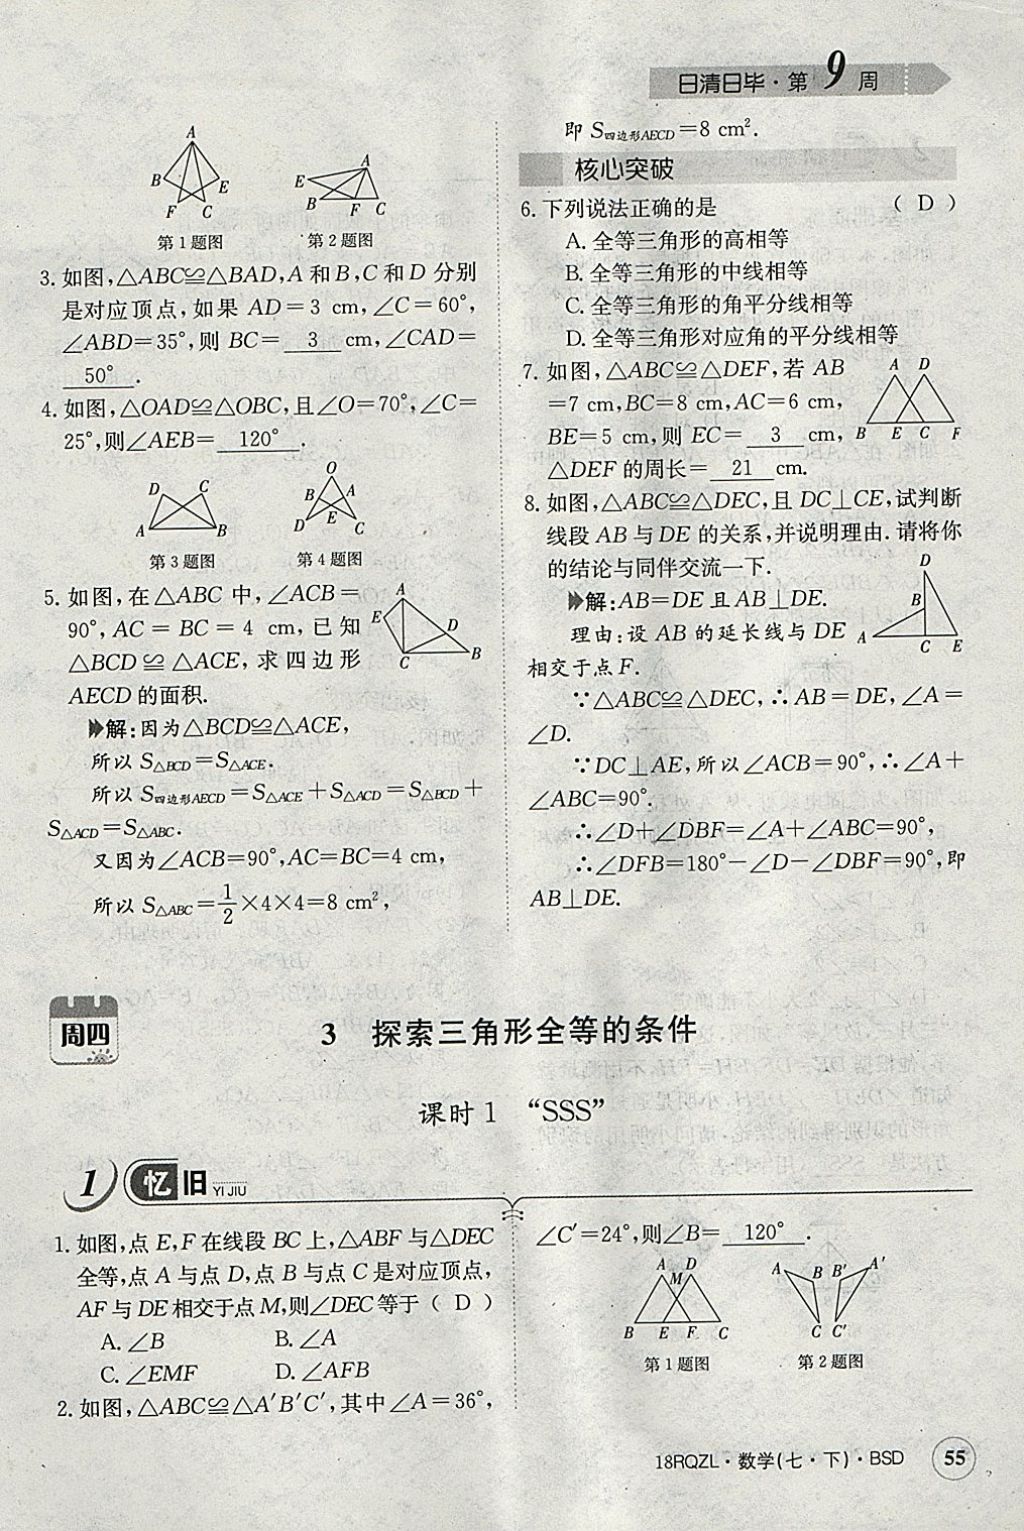 日清日毕·第9周
A
B E
F C
第1题图
A
E
B F C
第2题图
3. 如图,△ABC≌△BAD,A和B,C和D分别
是对应顶点,如果AD=3 cm,∠C=60°,
∠ABD=35°,则BC= 3 cm,∠CAD=
50° .
4. 如图,△OAD≌△OBC,且∠O=70°,∠C=
25°,则∠AEB= 120° .
D C
A B
第3题图
O
B A
D E C
第4题图
5. 如图,在△ABC中,∠ACB=
90°,AC=BC=4 cm,已知
△BCD≌△ACE,求四边形
AECD的面积.
A
E D
C B
解:因为△BCD≌△ACE,
所以S△BCD=S△ACE.
所以S四边形AECD=S△ACE+S△ACD=S△BCD+
S△ACD=S△ABC.
又因为∠ACB=90°,AC=BC=4 cm,
所以S△ABC=1/2×4×4=8 cm²,
即S四边形AECD=8 cm².
核心突破
6. 下列说法正确的是 ( D )
A. 全等三角形的高相等
B. 全等三角形的中线相等
C. 全等三角形的角平分线相等
D. 全等三角形对应角的平分线相等
7. 如图,△ABC≌△DEF,若AB
=7 cm,BC=8 cm,AC=6 cm,
BE=5 cm,则EC= 3 cm,
△DEF的周长= 21 cm.
A D
B E C F
8. 如图,△ABC≌△DEC,且DC⊥CE,试判断
线段AB与DE的关系,并说明理由.请将你
的结论与同伴交流一下.
解:AB=DE且AB⊥DE.
理由:设AB的延长线与DE
相交于点F.
D
B
A C E
∵△ABC≌△DEC,∴AB=DE,∠A=
∠D.
∵DC⊥AE,所以∠ACB=90°,∴∠A+
∠ABC=90°.
∴∠D+∠DBF=∠A+∠ABC=90°,
∴∠DFB=180°-∠D-∠DBF=90°,即
AB⊥DE.
周四
3 探索三角形全等的条件
课时1 “SSS”
1 忆旧 YI JIU
1. 如图,点E,F在线段BC上,△ABF与△DEC
全等,点A与点D,点B与点C是对应顶点,
AF与DE相交于点M,则∠DEC等于 ( D )
A. ∠B B. ∠A
C. ∠EMF D. ∠AFB
2. 如图,△ABC≌△A′B′C′,其中∠A=36°,
∠C′=24°,则∠B= 120° .
A D
M
B E F C
第1题图
A B B′ A′
C C′
第2题图
18RQZL·数学(七·下)·BSD 55